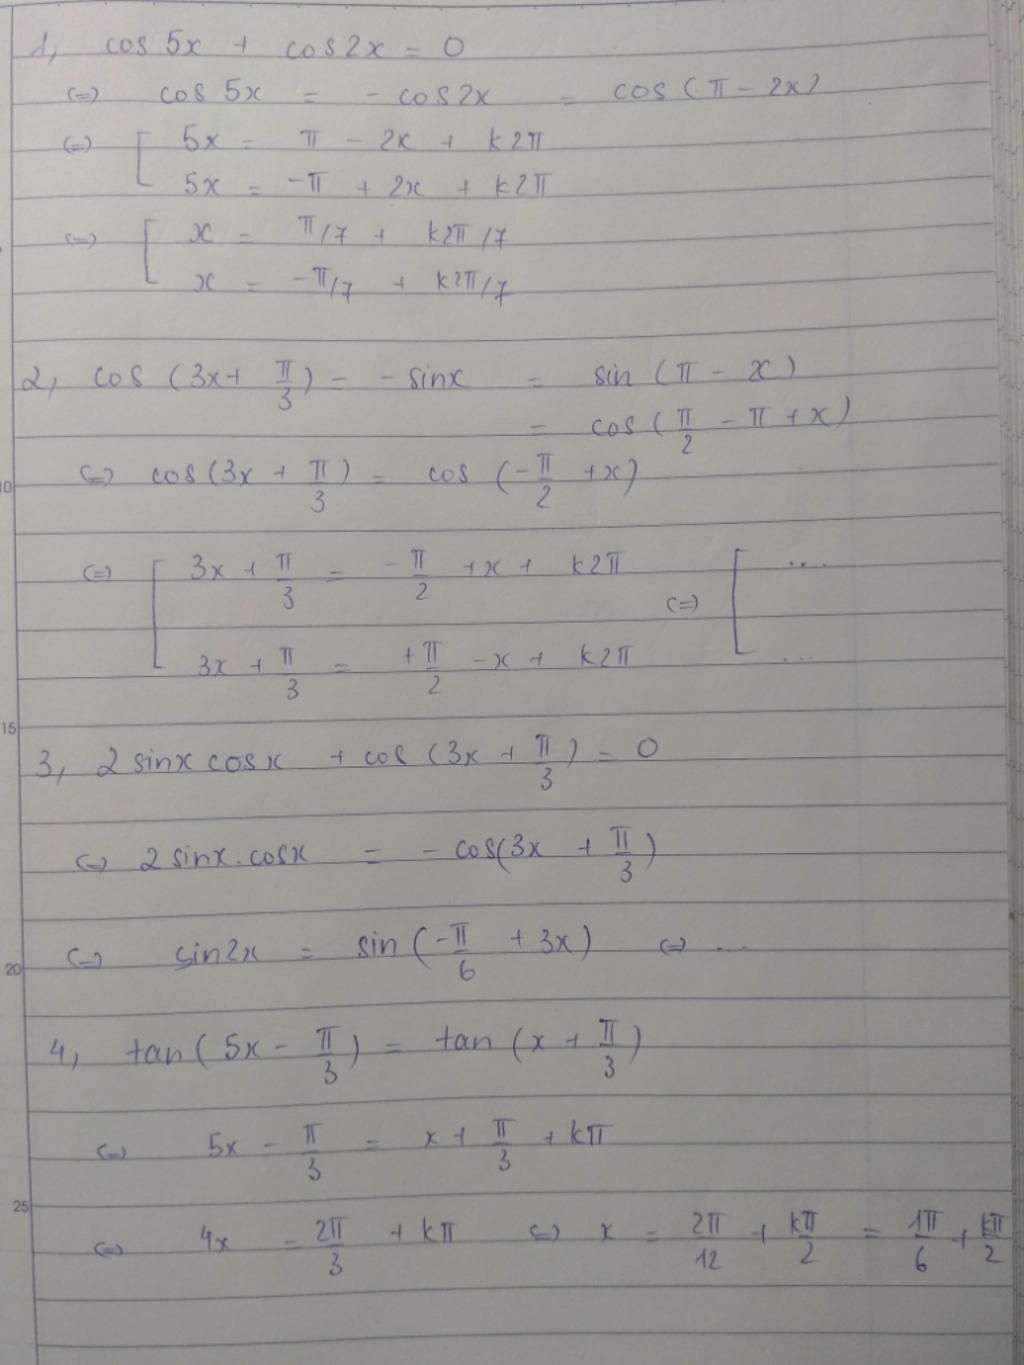 1, cos 5x + cos2x = 0
(=) cos 5x = - cos2x = cos (π - 2x)
(=) [ 5x = π - 2x + k2π
5x = -π + 2x + k2π
(=) [ x = π/7 + k2π/7
x = -π/7 + k2π/7
2, cos (3x + π/3) = - sinx = sin (π - x)
= cos (π/2 - π + x)
(=) cos (3x + π/3) = cos (-π/2 + x)
(=) [ 3x + π/3 = -π/2 + x + k2π (=) [ ....
3x + π/3 = +π/2 - x + k2π ...
3, 2 sinx cosx + cos (3x + π/3) = 0
(=) 2 sinx . cosx = - cos(3x + π/3)
(=) sin2x = sin (-π/6 + 3x) (=) ...
4, tan( 5x - π/3 ) = tan (x + π/3)
(=) 5x - π/3 = x + π/3 + kπ
(=) 4x = 2π/3 + kπ (=) x = 2π/12 + kπ/2 = 1π/6 + kπ/2
10
15
20
25